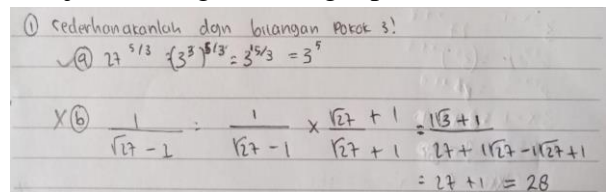 ① Sederhanakanlah dgn bilangan pokok 3!
✓ⓐ 27^5/3 = (3^3)^5/3 = 3^15/3 = 3^5
X ⓑ 1/(√27 - 1) = 1/(√27 - 1) × (√27 + 1)/(√27 + 1) = (1√3 + 1)/(27 + 1√27 - 1√27 + 1)
= 27 + 1 = 28